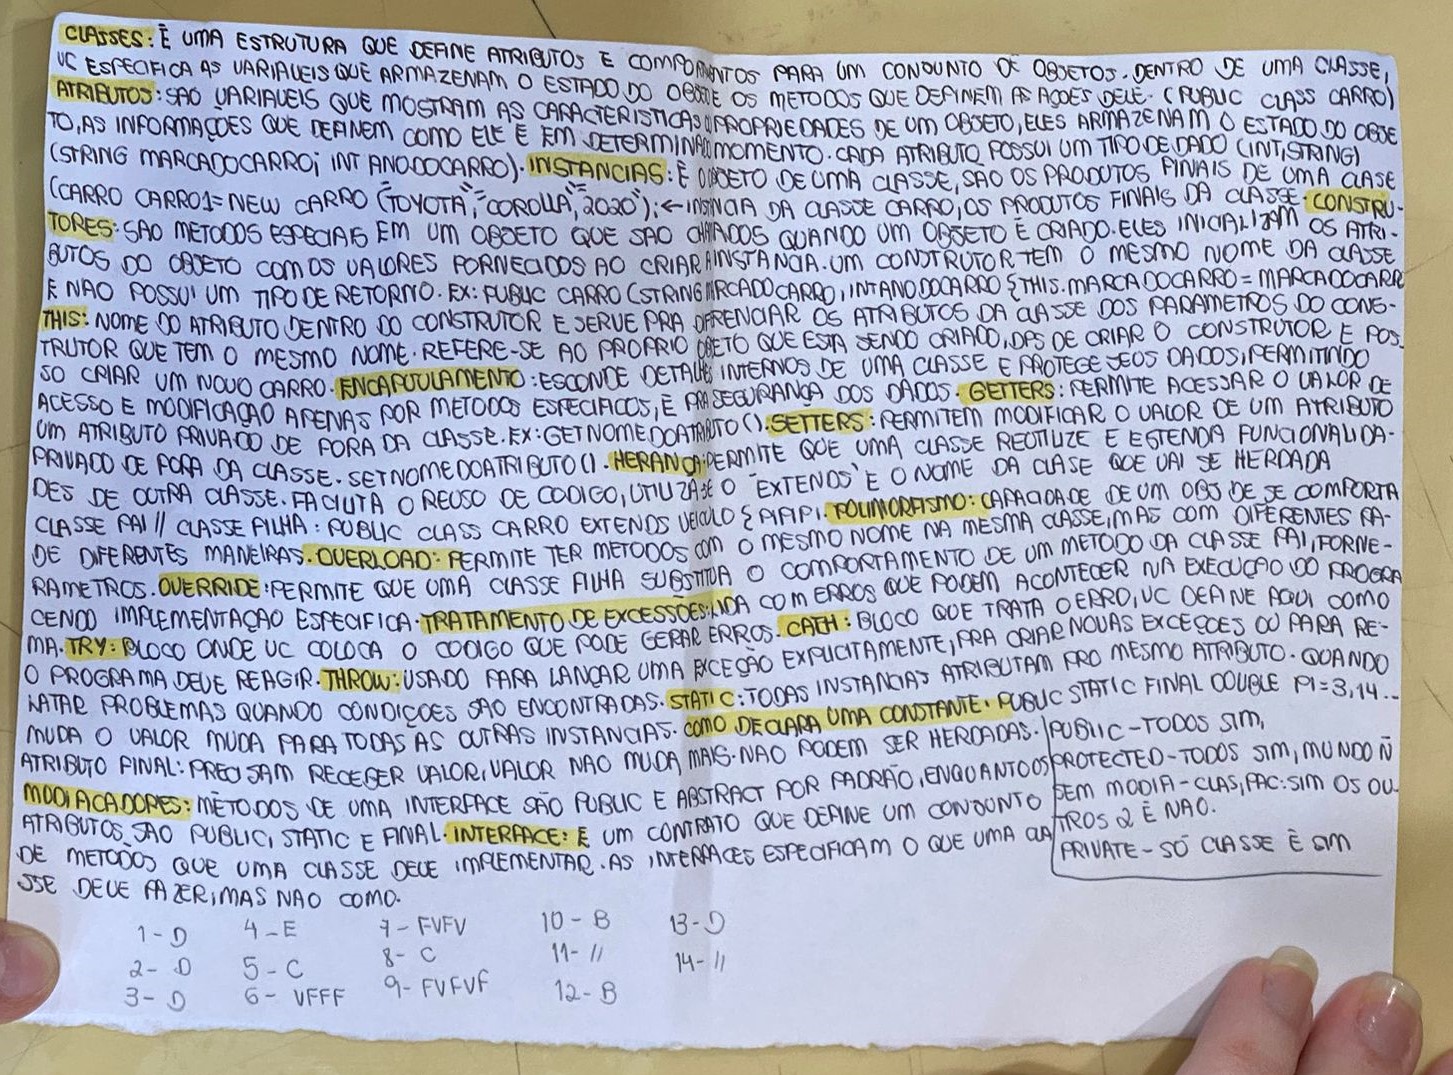 CLASSES: É UMA ESTRUTURA QUE DEFINE ATRIBUTOS E COMPORTAMENTOS PARA UM CONJUNTO DE OBJETOS. DENTRO DE UMA CLASSE,
VC ESPECIFICA AS VARIAVEIS QUE ARMAZENAM O ESTADO DO OBJ E OS METODOS QUE DEFINEM AS AÇOES DELE. (PUBLIC CLASS CARRO)
ATRIBUTOS: SAO VARIAVEIS QUE MOSTRAM AS CARACTERISTICAS PROPRIEDADES DE UM OBJETO, ELES ARMAZENAM O ESTADO DO OBJE
TO, AS INFORMAÇOES QUE DEFINEM COMO ELE E EM DETERMINADO MOMENTO. CADA ATRIBUTO POSSUI UM TIPO DE DADO (INT, STRING)
(STRING MARCADOCARRO; INT ANODOCARRO). INSTANCIAS: É O OBJETO DE UMA CLASSE, SAO OS PRODUTOS FINAIS DE UMA CLASE
(CARRO CARRO1 = NEW CARRO ("TOYOTA", "COROLLA", 2020"); ← INSTANCIA DA CLASSE CARRO, OS PRODUTOS FINAIS DA CLASSE. CONSTRU-
TORES: SAO METODOS ESPECIAIS EM UM OBJETO QUE SAO CHAMADOS QUANDO UM OBJETO É CRIADO. ELES INICIALIZAM OS ATRI-
BUTOS DO OBJETO COM OS VALORES FORNECIDOS AO CRIAR A INSTANCIA. UM CONSTRUTOR TEM O MESMO NOME DA CLASSE
E NAO POSSUI UM TIPO DE RETORNO. EX: PUBLIC CARRO (STRING MARCADOCARRO, INT ANODOCARRO { THIS.MARCADOCARRO = MARCADOCARR
THIS: NOME DO ATRIBUTO DENTRO DO CONSTRUTOR E SERVE PRA DIFERENCIAR OS ATRIBUTOS DA CLASSE DOS PARAMETROS DO CONS-
TRUTOR QUE TEM O MESMO NOME. REFERE-SE AO PROPRIO OBJETO QUE ESTA SENDO CRIADO, DPS DE CRIAR O CONSTRUTOR E POS
SO CRIAR UM NOVO CARRO. ENCAPSULAMENTO: ESCONDE DETALHES INTERNOS DE UMA CLASSE E PROTEGE SEUS DADOS, PERMITINDO
ACESSO E MODIFICAÇAO APENAS POR METODOS ESPECIFICOS, É PRA SEGURANÇA DOS DADOS. GETTERS: PERMITE ACESSAR O VALOR DE
UM ATRIBUTO PRIVADO DE FORA DA CLASSE. EX: GETNOMEDOATRIBUTO(). SETTERS: PERMITEM MODIFICAR O VALOR DE UM ATRIBUTO
PRIVADO DE FORA DA CLASSE. SETNOMEDOATRIBUTO(). HERANÇA: PERMITE QUE UMA CLASSE REUTILIZE E ESTENDA FUNCIONALIDA-
DES DE OUTRA CLASSE. FACILITA O REUSO DE CODIGO, UTILIZA-SE O "EXTENDS" E O NOME DA CLASE QUE VAI SE HERDADA
CLASSE PAI // CLASSE FILHA: PUBLIC CLASS CARRO EXTENDS VEICULO { PIPIPI. POLIMORFISMO: CAPACIDADE DE UM OBJ DE SE COMPORTA
DE DIFERENTES MANEIRAS. OVERLOAD: PERMITE TER METODOS COM O MESMO NOME NA MESMA CLASSE, MAS COM DIFERENTES PA-
RAMETROS. OVERRIDE: PERMITE QUE UMA CLASSE FILHA SUBSTITUA O COMPORTAMENTO DE UM METODO DA CLASSE PAI, FORNE-
CENDO IMPLEMENTAÇAO ESPECIFICA. TRATAMENTO DE EXCESSÕES: LIDA COM ERROS QUE PODEM ACONTECER NA EXECUÇAO DO PROGRA
MA. TRY: BLOCO ONDE VC COLOCA O CODIGO QUE PODE GERAR ERROS. CATH: BLOCO QUE TRATA O ERRO, VC DEFINE AQUI COMO
O PROGRAMA DEVE REAGIR. THROW: USADO PARA LANÇAR UMA EXCEÇÃO EXPLICITAMENTE, PRA CRIAR NOVAS EXCEÇOES OU PARA RE-
LATAR PROBLEMAS QUANDO CONDIÇOES SAO ENCONTRADAS. STATIC: TODAS INSTANCIAS ATRIBUTAM PRO MESMO ATRIBUTO. QUANDO
MUDA O VALOR MUDA PARA TODAS AS OUTRAS INSTANCIAS. COMO DECLARA UMA CONSTANTE. PUBLIC STATIC FINAL DOUBLE PI=3,14...
ATRIBUTO FINAL: PRECISAM RECEBER VALOR, VALOR NAO MUDA MAIS. NAO PODEM SER HERDADAS.
MODIFICADORES: MÉTODOS DE UMA INTERFACE SÃO PUBLIC E ABSTRACT POR PADRÃO, ENQUANTO OS
ATRIBUTOS SAO PUBLIC, STATIC E FINAL. INTERFACE: É UM CONTRATO QUE DEFINE UM CONJUNTO
DE METODOS QUE UMA CLASSE DEVE IMPLEMENTAR. AS INTERFACES ESPECIFICAM O QUE UMA CLA
SSE DEVE FAZER, MAS NAO COMO.
PUBLIC - TODOS SIM,
PROTECTED - TODOS SIM, MUNDO Ñ
SEM MODIA - CLAS, PAC: SIM OS OU-
TROS 2 É NAO.
PRIVATE - SÓ CLASSE É SIM
1 - D
2 - D
3 - D
4 - E
5 - C
6 - VFFF
7 - FVFV
8 - C
9 - FVFVF
10 - B
11 - //
12 - B
13 - D
14 - //